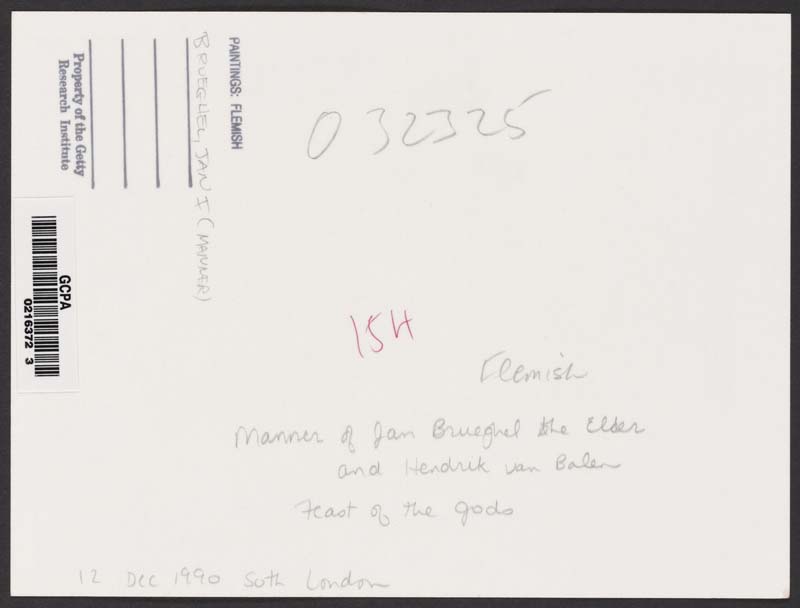 PAINTINGS: FLEMISH
BRUEGHEL, JAN I (MANNER)
Property of the Getty
Research Institute
GCPA
0216372 3
032325
15H
Flemish
Manner of Jan Brueghel the Elder
and Hendrik van Balen
Feast of the gods
12 Dec 1990 Soth London